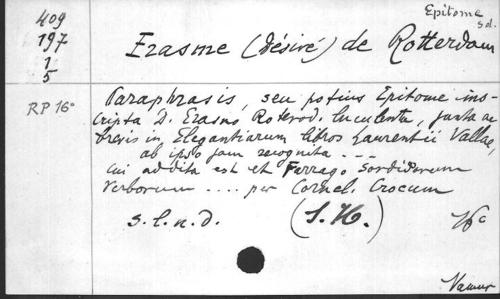 409
197
1
5
Epitome
s.d.
Erasme (Désiré) de Rotterdam
RP 16°
Paraphrasis, seu potius Epitome ins-
cripta D. Erasmo Roterod. luculenta, juxta ac
brevis in Elegantiarum libros Laurentii Vallae,
ab ipso jam recognita ...
cui addita est et Farrago sordidorum
verborum .... per Cornel. Crocum
s.l.n.d. (S.H.) 16c
Namur